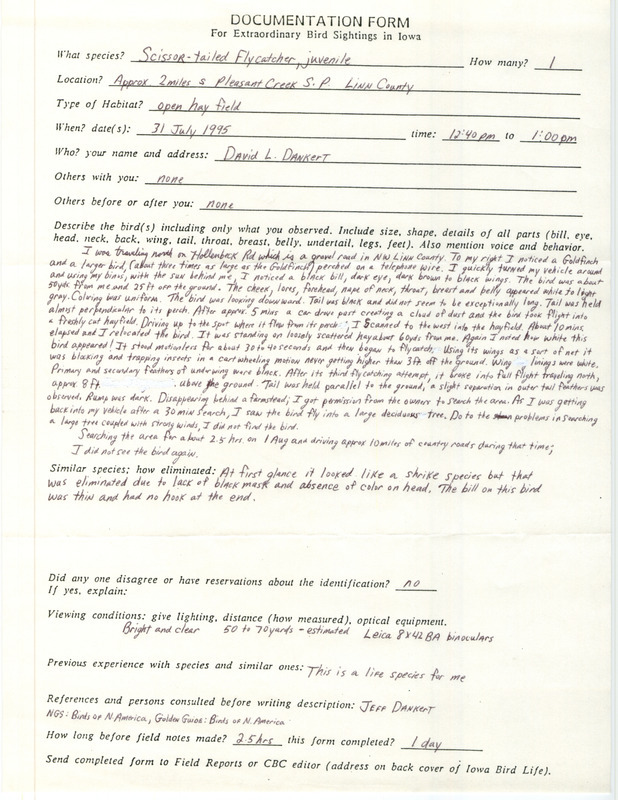 DOCUMENTATION FORM
For Extraordinary Bird Sightings in Iowa
What species? Scissor-tailed Flycatcher, juvenile How many? 1
Location? Approx. 2 miles S Pleasant Creek S.P. Linn County
Type of Habitat? open hay field
When? date(s): 31 July 1995 time: 12:40 pm to 1:00 pm
Who? your name and address: David L. Dankert
Others with you: none
Others before or after you: none
Describe the bird(s) including only what you observed. Include size, shape, details of all parts (bill, eye,
head, neck, back, wing, tail, throat, breast, belly, undertail, legs, feet). Also mention voice and behavior.
I was traveling north on Hollenback Rd which is a gravel road in NW Linn County. To my right I noticed a Goldfinch
and a larger bird, (about three times as large as the Goldfinch) perched on a telephone wire. I quickly turned my vehicle around
and using my binos, with the sun behind me, I noticed a black bill, dark eye, dark brown to black wings. The bird was about
50 yds. from me and 25 ft off the ground. The cheek, lores, forehead, nape of neck, throat, breast and belly appeared white to light
gray. Coloring was uniform. The bird was looking downward. Tail was black and did not seem to be exceptionally long. Tail was held
almost perpendicular to its perch. After approx. 5 mins a car drove past creating a cloud of dust and the bird took flight into
a freshly cut hayfield. Driving up to the spot where it flew from its perch, I scanned to the west into the hayfield. About 10 mins.
elapsed and I relocated the bird. It was standing on loosely scattered hay about 60 yds from me. Again I noted how white this
bird appeared! It stood motionless for about 30 to 40 seconds and then began to flycatch. Using its wings as a sort of net it
was bluxing and trapping insects in a cartwheeling motion never getting higher then 3 ft off the ground. Wing linings were white.
Primary and secondary feathers of underwing were black. After its third flycatching attempt, it broke into full flight traveling north,
approx 8 ft above the ground. Tail was held parallel to the ground, a slight separation in outer tail feathers was
observed. Rump was dark. Disappearing behind a farmstead; I got permission from the owners to search the area. As I was getting
back into my vehicle after a 30 min search, I saw the bird fly into a large deciduous tree. Do to the problems in searching
a large tree coupled with strong winds, I did not find the bird.
Searching the area for about 2.5 hrs on 1 Aug and driving approx 10 miles of country roads during that time;
I did not see the bird again.
Similar species; how eliminated: At first glance it looked like a shrike species but that
was eliminated due to lack of black mask and absence of color on head. The bill on this bird
was thin and had no hook at the end.
Did any one disagree or have reservations about the identification? no
If yes, explain:
Viewing conditions: give lighting, distance (how measured), optical equipment.
Bright and clear 50 to 70 yards - estimated Leica 8x42 BA binoculars
Previous experience with species and similar ones: This is a life species for me
References and persons consulted before writing description: Jeff Dankert
NGS: Birds of N. America, Golden Guide: Birds of N. America
How long before field notes made? 2.5 hrs this form completed? 1 day
Send completed form to Field Reports or CBC editor (address on back cover of Iowa Bird Life).